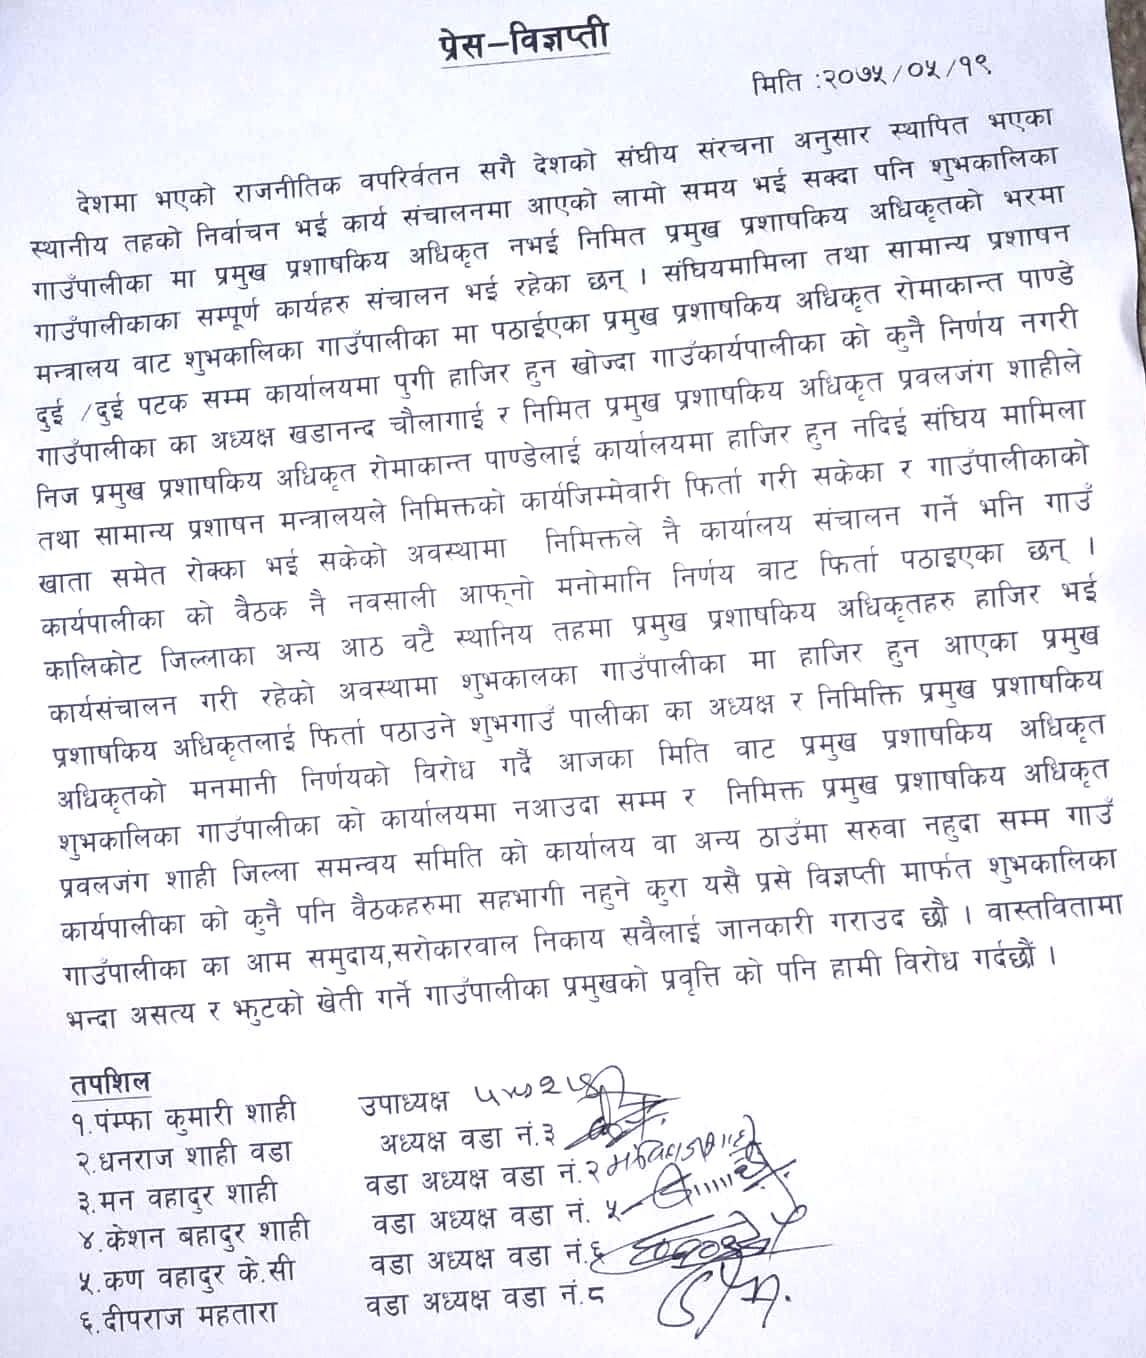 प्रेस-विज्ञप्ती
मिति :२०७५/०५/१९
देशमा भएको राजनीतिक वपरिर्वतन सगै देशको संघीय संरचना अनुसार स्थापित भएका
स्थानीय तहको निर्वाचन भई कार्य संचालनमा आएको लामो समय भई सक्दा पनि शुभकालिका
गाउँपालीका मा प्रमुख प्रशाषकिय अधिकृत नभई निमित प्रमुख प्रशाषकिय अधिकृतको भरमा
गाउँपालीकाका सम्पूर्ण कार्यहरु संचालन भई रहेका छन् । संघियमामिला तथा सामान्य प्रशाषन
मन्त्रालय वाट शुभकालिका गाउँपालीका मा पठाईएका प्रमुख प्रशाषकिय अधिकृत रोमाकान्त पाण्डे
दुई /दुई पटक सम्म कार्यालयमा पुगी हाजिर हुन खोज्दा गाउँकार्यपालीका को कुनै निर्णय नगरी
गाउँपालीका का अध्यक्ष खडानन्द चौलागाई र निमित प्रमुख प्रशाषकिय अधिकृत प्रवलजंग शाहीले
निज प्रमुख प्रशाषकिय अधिकृत रोमाकान्त पाण्डेलाई कार्यालयमा हाजिर हुन नदिई संघिय मामिला
तथा सामान्य प्रशाषन मन्त्रालयले निमिक्तको कार्यजिम्मेवारी फिर्ता गरी सकेका र गाउँपालीकाको
खाता समेत रोक्का भई सकेको अवस्थामा निमिक्तले नै कार्यालय संचालन गर्ने भनि गाउँ
कार्यपालीका को वैठक नै नवसाली आफ्नो मनोमानि निर्णय वाट फिर्ता पठाइएका छन् ।
कालिकोट जिल्लाका अन्य आठ वटै स्थानिय तहमा प्रमुख प्रशाषकिय अधिकृतहरु हाजिर भई
कार्यसंचालन गरी रहेको अवस्थामा शुभकालका गाउँपालीका मा हाजिर हुन आएका प्रमुख
प्रशाषकिय अधिकृतलाई फिर्ता पठाउने शुभगाउँ पालीका का अध्यक्ष र निमिक्ति प्रमुख प्रशाषकिय
अधिकृतको मनमानी निर्णयको विरोध गर्दै आजका मिति वाट प्रमुख प्रशाषकिय अधिकृत
शुभकालिका गाउँपालीका को कार्यालयमा नआउदा सम्म र निमिक्त प्रमुख प्रशाषकिय अधिकृत
प्रवलजंग शाही जिल्ला समन्वय समिति को कार्यालय वा अन्य ठाउँमा सरुवा नहुदा सम्म गाउँ
कार्यपालीका को कुनै पनि वैठकहरुमा सहभागी नहुने कुरा यसै प्रसे विज्ञप्ती मार्फत शुभकालिका
गाउँपालीका का आम समुदाय,सरोकारवाल निकाय सवैलाई जानकारी गराउद छौ । वास्तवितामा
भन्दा असत्य र झुटको खेती गर्ने गाउँपालीका प्रमुखको प्रवृत्ति को पनि हामी विरोध गर्दछौं ।
तपशिल
१.पंम्फा कुमारी शाही उपाध्यक्ष
२.धनराज शाही वडा अध्यक्ष वडा नं.३
३.मन वहादुर शाही वडा अध्यक्ष वडा नं.२
४.केशन बहादुर शाही वडा अध्यक्ष वडा नं. ५
५.कण वहादुर के.सी वडा अध्यक्ष वडा नं.६
६.दीपराज महतारा वडा अध्यक्ष वडा नं.८